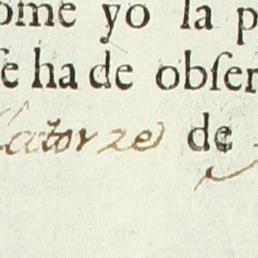 ome yo la p
ſe ha de obſer
Catorze de